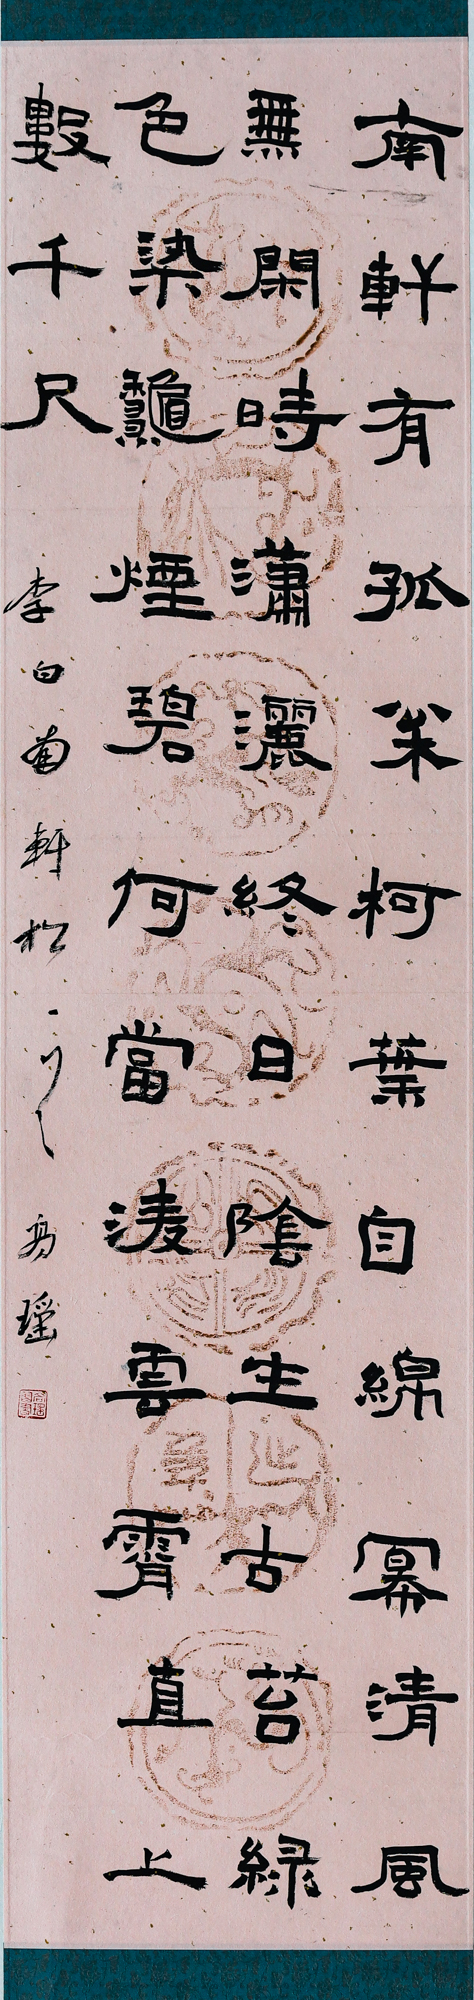 南軒有孤枀柯葉自綿冪清風
無閑時瀟灑終日陰生古苔綠
色染龝煙碧何當淩雲霄直上
數千尺 李白南軒松一首 高瑶